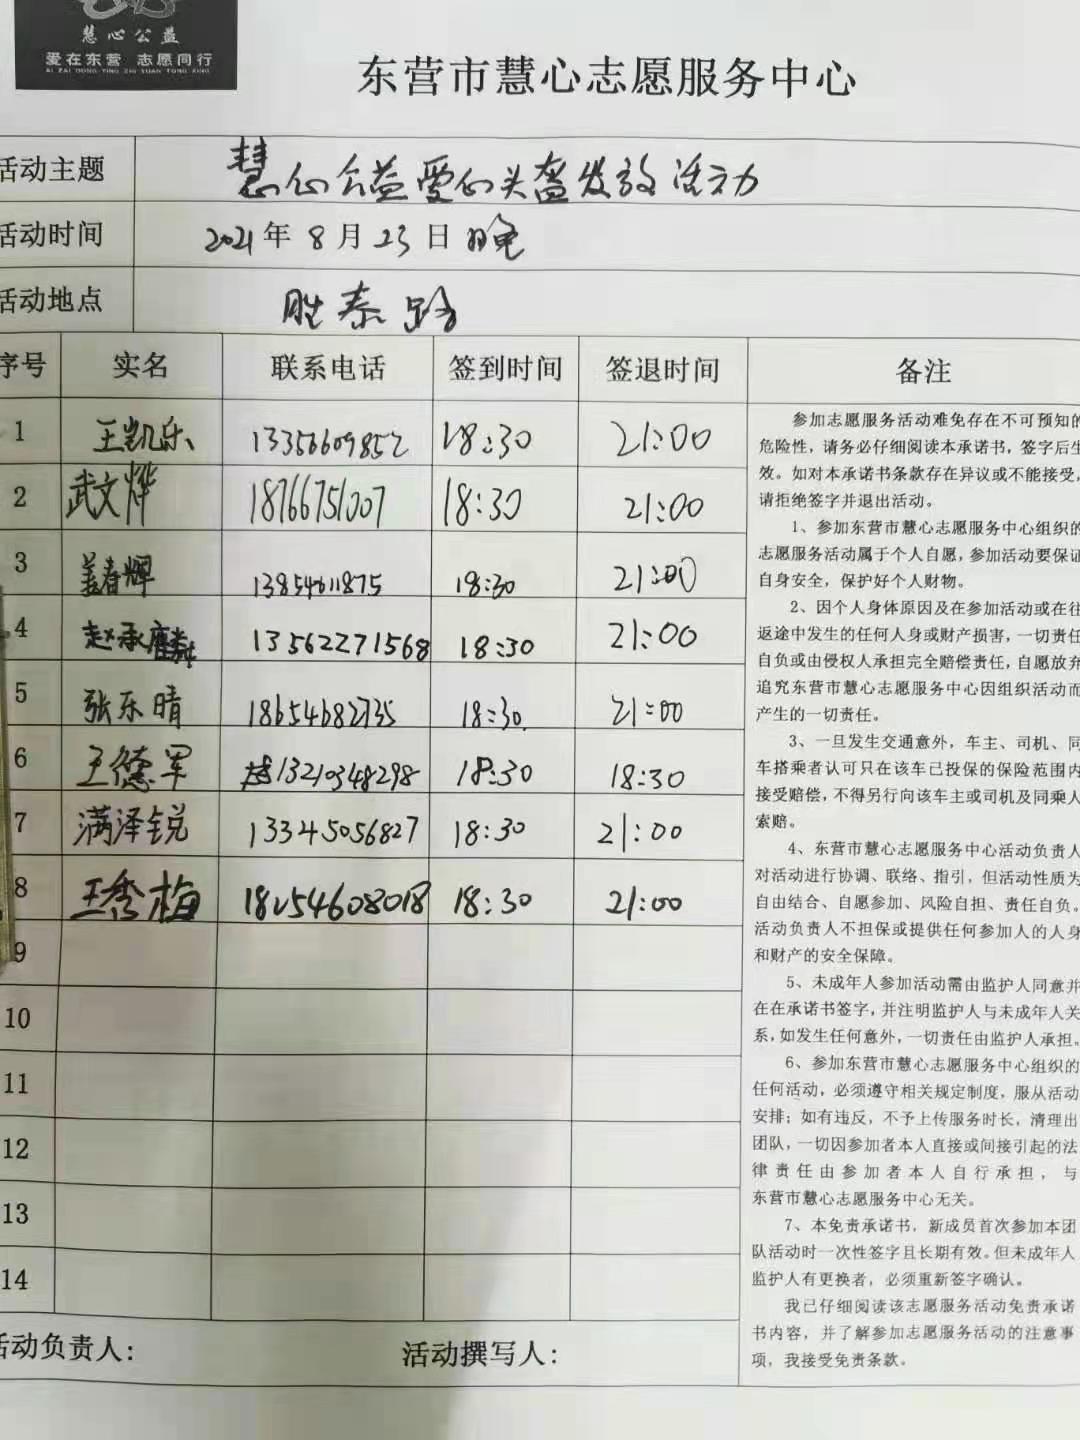 慧心公益
爱在东营 志愿同行
AI ZAI DONG YING ZHI YUAN TONG XING
东营市慧心志愿服务中心
活动主题 慧心公益爱心头盔发放活动
活动时间 2021年8月23日晚
活动地点 胜泰路
序号 实名 联系电话 签到时间 签退时间 备注
1 王凯乐 13356609852 18:30 21:00
2 武文烨 18766751007 18:30 21:00
3 姜春辉 13854611875 18:30 21:00
4 赵承麟 13562271568 18:30 21:00
5 张乐晴 18654682735 18:30 21:00
6 王德军 13210348298 18:30 18:30
7 满泽锐 13345056827 18:30 21:00
8 王秀梅 18254608018 18:30 21:00
9
10
11
12
13
14
参加志愿服务活动难免存在不可预知的
危险性，请务必仔细阅读本承诺书，签字后生
效。如对本承诺书条款存在异议或不能接受，
请拒绝签字并退出活动。
1、参加东营市慧心志愿服务中心组织的
志愿服务活动属于个人自愿，参加活动要保证
自身安全，保护好个人财物。
2、因个人身体原因及在参加活动或在往
返途中发生的任何人身或财产损害，一切责任
自负或由侵权人承担完全赔偿责任，自愿放弃
追究东营市慧心志愿服务中心因组织活动而
产生的一切责任。
3、一旦发生交通意外，车主、司机、同
车搭乘者认可只在该车已投保的保险范围内
接受赔偿，不得另行向该车主或司机及同乘人
索赔。
4、东营市慧心志愿服务中心活动负责人
对活动进行协调、联络、指引，但活动性质为
自由结合、自愿参加、风险自担、责任自负。
活动负责人不担保或提供任何参加人的人身
和财产的安全保障。
5、未成年人参加活动需由监护人同意并
在在承诺书签字，并注明监护人与未成年人关
系，如发生任何意外，一切责任由监护人承担。
6、参加东营市慧心志愿服务中心组织的
任何活动，必须遵守相关规定制度，服从活动
安排；如有违反，不予上传服务时长，清理出
团队，一切因参加者本人直接或间接引起的法
律责任由参加者本人自行承担，与
东营市慧心志愿服务中心无关。
7、本免责承诺书，新成员首次参加本团
队活动时一次性签字且长期有效。但未成年人
监护人有更换者，必须重新签字确认。
我已仔细阅读该志愿服务活动免责承诺
书内容，并了解参加志愿服务活动的注意事
项，我接受免责条款。
活动负责人： 活动撰写人：